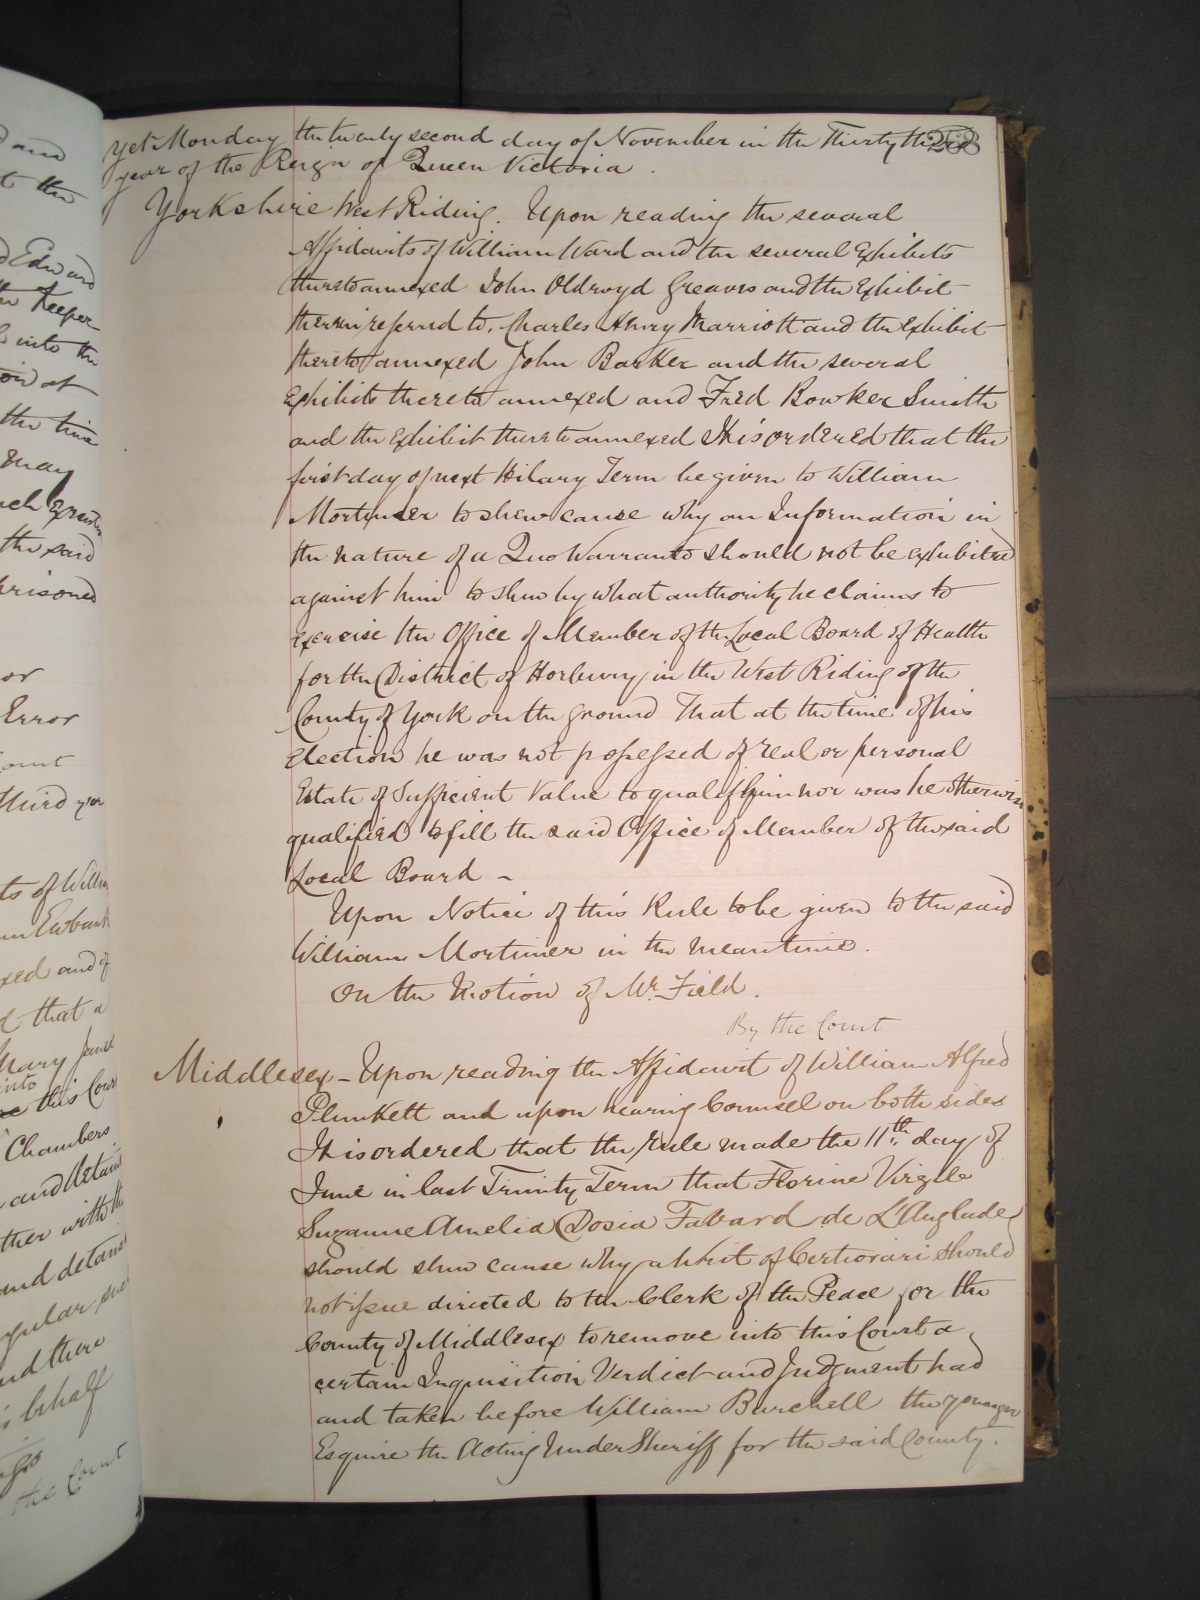 yet Monday the twenty second day of November in the Thirty third
268
year of the Reign of Queen Victoria.
Yorkshire West Riding. Upon reading the several
Affidavits of William Ward and the several Exhibits
thereto annexed John Oldroyd Greaves and the Exhibit
therein referred to, Charles Henry Marriott and the Exhibit
thereto annexed John Barker and the several
Exhibits thereto annexed and Fred Bowker Smith
and the Exhibit thereto annexed It is ordered that the
first day of next Hilary Term be given to William
Mortimer to shew cause why an Information in
the nature of a Quo Warranto should not be exhibited
against him to shew by what authority he claims to
exercise the Office of Member of the Local Board of Health
for the District of Horbury in the West Riding of the
County of York on the ground That at the time of his
Election he was not possessed of real or personal
Estate of Sufficient Value to qualify him nor was he otherwise
qualified to fill the said Office of Member of the said
Local Board -
Upon Notice of this Rule to be given to the said
William Mortimer in the meantime.
On the Motion of Mr. Field.
By the Court
Middlesex - Upon reading the Affidavit of William Alfred
Plunkett and upon hearing Counsel on both sides
It is ordered that the Rule made the 11th day of
June in last Trinity Term that Florine Virgile
Suzanne Amelia Dosia Tabard de L'Anglade
should shew cause why a Writ of Certiorari should
not issue directed to the Clerk of the Peace for the
County of Middlesex to remove into this Court a
certain Inquisition Verdict and Judgment had
and taken before William Burchell the younger
Esquire the Acting Under Sheriff for the said County.